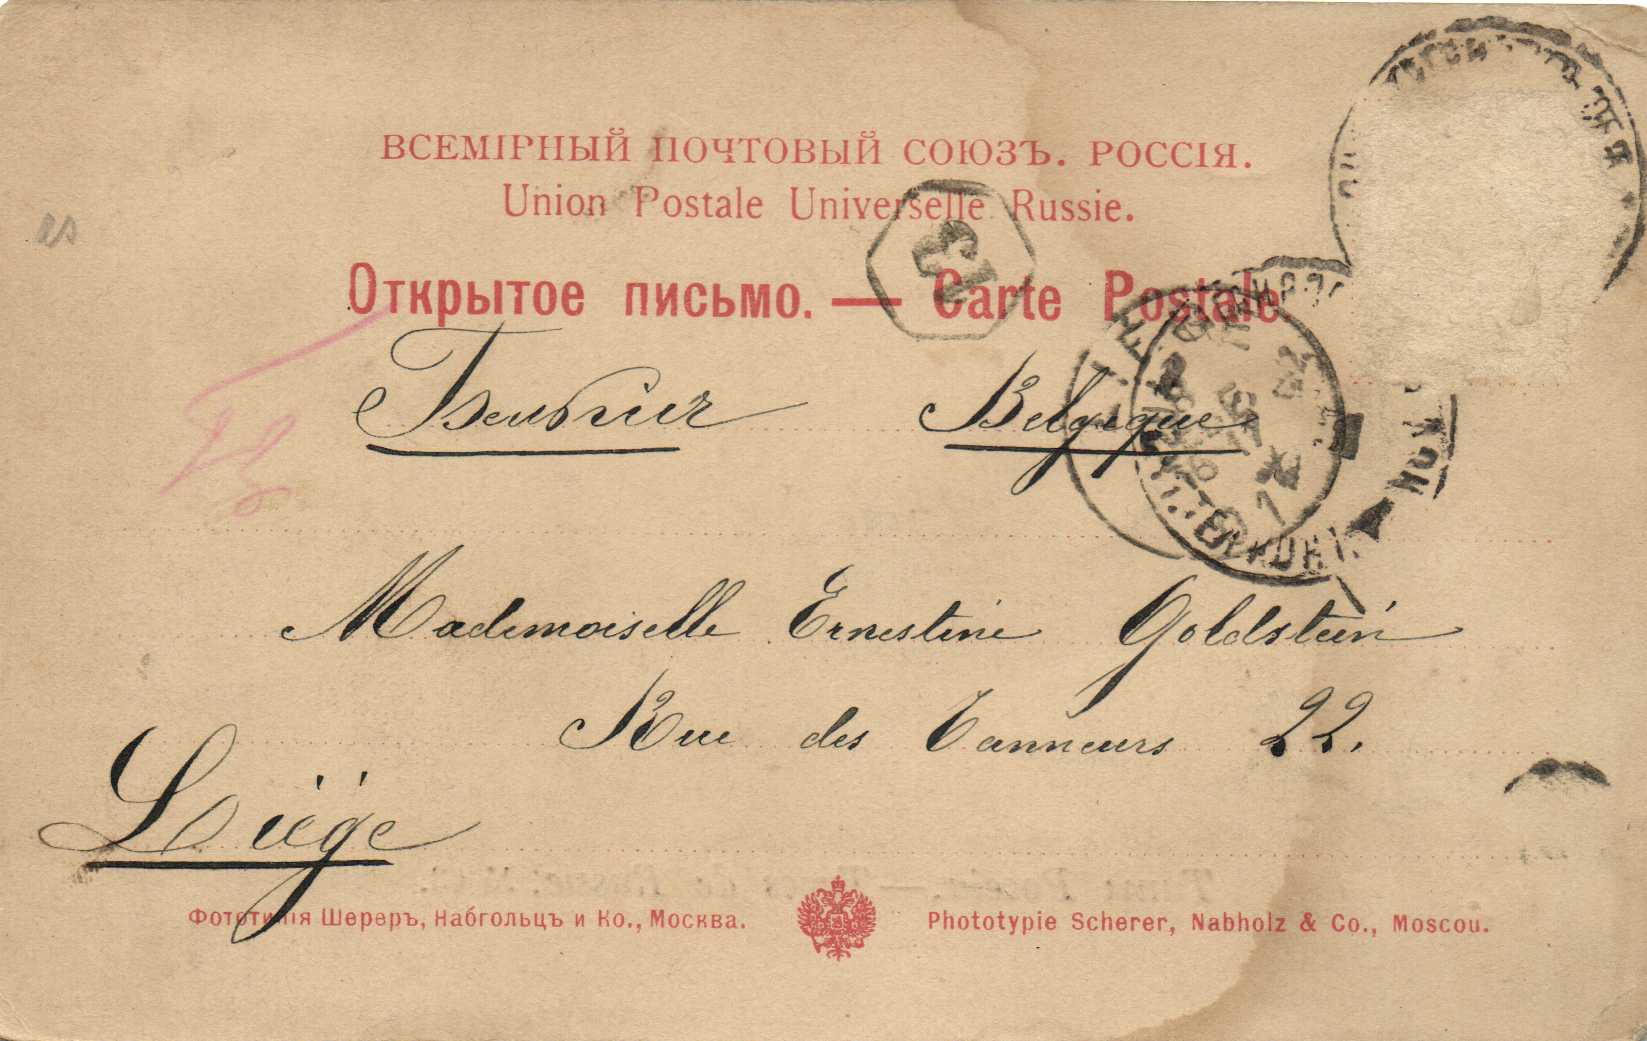 ВСЕМІРНЫЙ ПОЧТОВЫЙ СОЮЗЪ. РОССІЯ.
Union Postale Universelle Russie.
Открытое письмо. — Carte Postale
13
Бельгия Belgique
Mademoiselle Ernestine Goldstein
Rue des Tanneurs 22.
Liége
Фототипія Шереръ, Набгольцъ и Ко., Москва.
Phototypie Scherer, Nabholz & Co., Moscou.